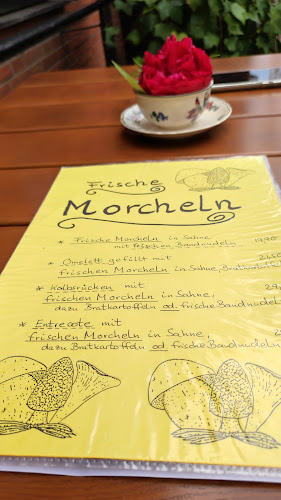 Frische
Morcheln
* Frische Morcheln in Sahne
mit frischen Bandnudeln 19,70
* Omelett gefüllt mit
frischen Morcheln in Sahne,
* Kalbsrücken mit
frischen Morcheln in Sahne,
dazu Bratkartoffeln od. frische Bandnudeln
* Entrecote mit
frischen Morcheln in Sahne,
dazu Bratkartoffeln od frische Bandnudeln